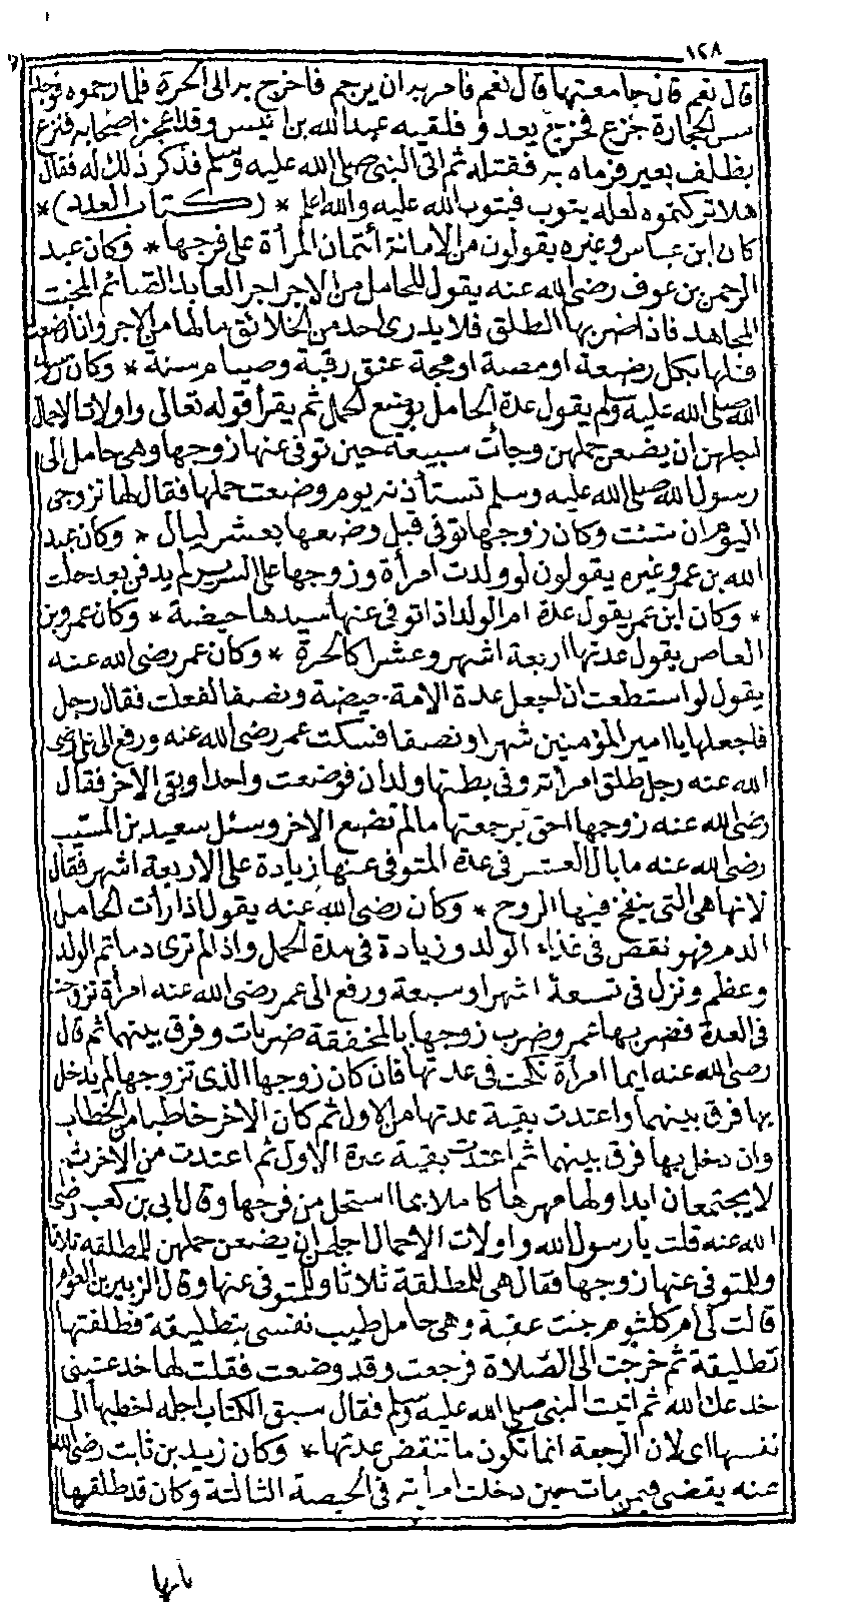 ١٢٨
قال نعم قال جامعتها قال نعم فأمر به ان يرجم فاخرج به الى الحرة فلما رجموه فوجد
مس الحجارة جزع فخرج يعدو فلقيه عبد الله بن انيس وقد اعجز اصحابه فنزع
بظلف بعير فرماه به فقتله ثم اتى النبى صلى الله عليه وسلم فذكر ذلك له فقال
هلا تركتموه لعله يتوب فيتوب الله عليه والله اعلم * (كتاب العدد) *
كان ابن عباس وغيره يقولون من الامانة أئتمان المرأة على فرجها * وكان عبد
الرحمن بن عوف رضى الله عنه يقول للحامل من الاجر اجر العابد القائم المخبت
المجاهد فاذا ضربها الطلق فلا يدرى احد من الخلائق ما لها من الاجر واذا وضعت
فلها بكل رضعة او مصة او مجة عتق رقبة وصيام سنة * وكان رسول
الله صلى الله عليه وسلم يقول عدة الحامل بوضع الحمل ثم يقرأ قوله تعالى واولات الاحمال
اجلهن ان يضعن حملهن وجأت سبيعة حين توفى عنها زوجها وهى حامل الى
رسول الله صلى الله عليه وسلم تستأذنه يوم وضعت حملها فقال لها تزوجى
اليوم ان شئت وكان زوجها توفى قبل وضعها بعشر ليال * وكان عبد
الله بن عمر وغيره يقولون لو ولدت امرأة وزوجها على السرير لم يدفن بعد حلت
* وكان ابن عمر يقول عدة ام الولد اذا توفى عنها سيدها حيضة * وكان عمرو بن
العاص يقول عدتها اربعة اشهر وعشرا كالحرة * وكان عمر رضى الله عنه
يقول لو استطعت ان اجعل عدة الامة حيضة ونصفا لفعلت فقال رجل
فاجعلها يا امير المؤمنين شهرا ونصفا فسكت عمر رضى الله عنه ورفع الى على رضى
الله عنه رجل طلق امرأته وفى بطنها ولدان فوضعت واحدا وبقى الاخر فقال
رضى الله عنه زوجها احق برجعتها ما لم تضع الاخر وسئل سعيد بن المسيب
رضى الله عنه ما بال العشر فى عدة المتوفى عنها زيادة على الاربعة اشهر فقال
لانها هى التى ينفخ فيها الروح * وكان رضى الله عنه يقول اذا رأت الحامل
الدم فهو نقص فى غذاء الولد وزيادة فى مدة الحمل واذا لم ترى دما تم الولد
وعظم ونزل فى تسعة اشهر او سبعة ورفع الى عمر رضى الله عنه امرأة تزوجت
فى العدة فضربها عمر وضرب زوجها بالمخفقة ضربات وفرق بينهما ثم قال
رضى الله عنه ايما امرأة نكحت فى عدتها فان كان زوجها الذى تزوجها لم يدخل
بها فرق بينهما واعتدت بقية عدتها من الاول ثم كان الاخر خاطبا من الخطاب
وان دخل بها فرق بينهما ثم اعتدت بقية عدة الاول ثم اعتدت من الاخر ثم
لا يجتمعان ابدا ولها مهرها كاملا بما استحل من فرجها وقال ابى بن كعب رضى
الله عنه قلت يا رسول الله واولات الاحمال اجلهن ان يضعن حملهن للمطلقة ثلاثا
وللمتوفى عنها زوجها فقال هى للمطلقة ثلاثا وللمتوفى عنها وقال الزبير بن العوام
قالت لى ام كلثوم بنت عقبة وهى حامل طيب نفسى بتطليقة فطلقتها
تطليقة ثم خرجت الى الصلاة فرجعت وقد وضعت فقلت لها خدعتينى
خدعك الله ثم اتيت النبى صلى الله عليه وسلم فقال سبق الكتاب اجله اخطبها الى
نفسها اى لان الرجعة انما تكون ما تنقض عدتها * وكان زيد بن ثابت رضى الله
عنه يقضى فيمن مات حين دخلت امرأته فى الحيضة الثالثة وكان قد طلقها